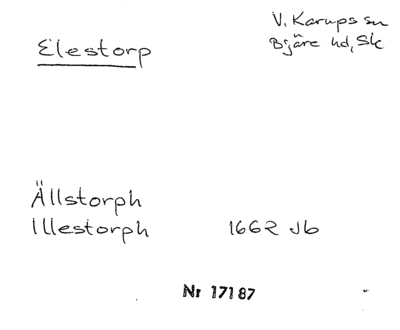 V. Karups sn
Elestorp
Bjäre hd, Sk
Ällstorph
Illestorph 1662 Jb
Nr 17187